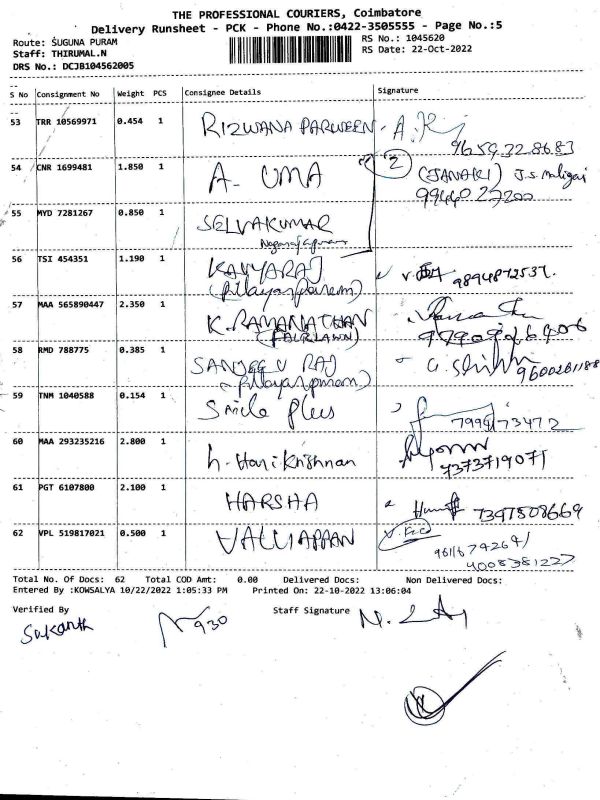 THE PROFESSIONAL COURIERS, Coimbatore
Delivery Runsheet - PCK - Phone No.:0422-3505555 - Page No.:5
Route: SUGUNA PURAM
RS No.: 1045620
Staff: THIRUMAL.N
RS Date: 22-Oct-2022
DRS No.: DCJB104562005
S No Consignment No Weight PCS Consignee Details Signature
53 TRR 10569971 0.454 1 RIZWANA PARWEEN - A.
9659328683
54 CNR 1699481 1.850 1 A- UMA 2 (JANAKI) J.S. maligai
9944027200
55 MYD 7281267 0.850 1 SELVAKUMAR
56 TSI 454351 1.190 1 KAVYARAJ
(pillayarpuram) 9894872537.
57 MAA 565890447 2.350 1 K. RAMANATHAN
(FAIRLAWN)
58 RMD 788775 0.385 1 SANJEEV RAJ
(pillayarpuram) 9600261188
59 TNM 1040588 0.154 1 Smile plus
60 MAA 293235216 2.800 1 h. Hari Krishnan
7373719071
61 PGT 6107800 2.100 1 HARSHA 7397508669
62 VPL 519817021 0.500 1 VALLIAPPAN
Total No. Of Docs: 62 Total COD Amt: 0.00 Delivered Docs: Non Delivered Docs:
Entered By :KOWSALYA 10/22/2022 1:05:33 PM Printed On: 22-10-2022 13:06:04
Verified By Staff Signature
Sukanth 930